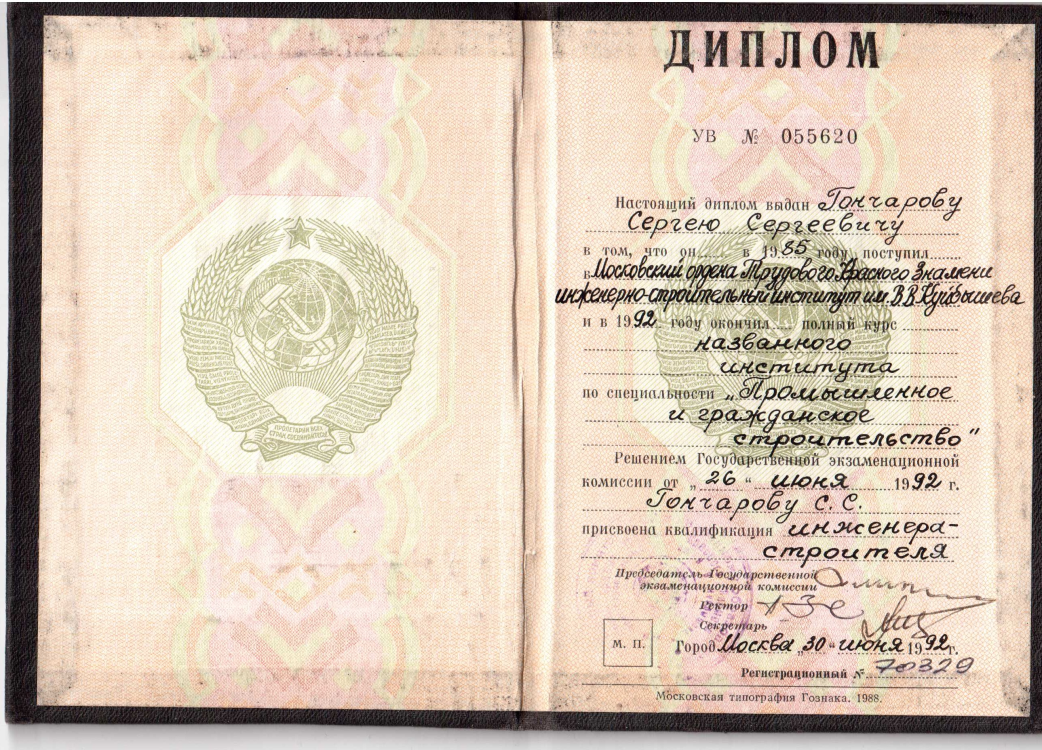 ПРОЛЕТАРИИ ВСЕХ
СТРАН, СОЕДИНЯЙТЕСЬ!
ДИПЛОМ
УВ № 055620
Настоящий диплом выдан Гончарову
Сергею Сергеевичу
в том, что он...... в 1985 году поступил......
в Московский ордена Трудового Красного Знамени
инженерно-строительный институт им. В.В. Куйбышева
и в 1992 году окончил..... полный курс
названного
института
по специальности „Промышленное
и гражданское
строительство"
Решением Государственной экзаменационной
комиссии от „ 26 " июня 1992 г.
Гончарову С. С.
присвоена квалификация инженера-
строителя
Председатель Государственной
экзаменационной комиссии
Ректор
Секретарь
М. П.
Город Москва „30" июня 1992г.
Регистрационный № 70329
Московская типография Гознака. 1988.